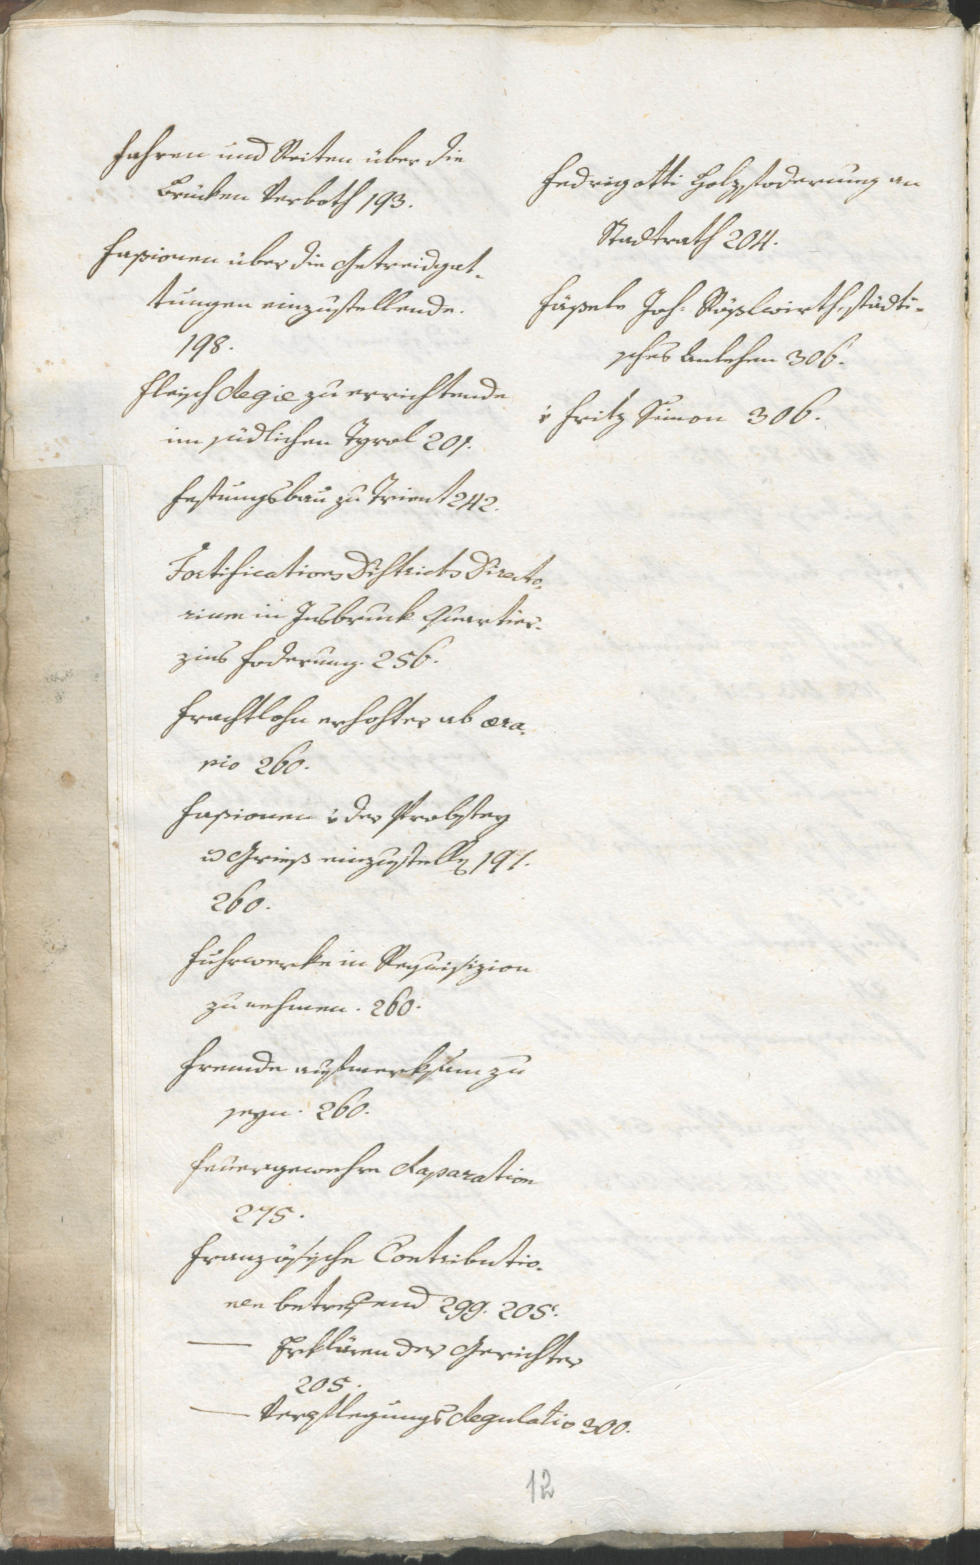 Fahren und Reiten über die
Brücken Verboth 193.
Fassionen über die Getreidgat-
tungen einzustellende.
198.
Fleisch Regie zu errichtende
im südlichen Tyrol 201.
Festungsbau zu Trient 242.
Fortifications Districts Directo-
rium in Insbruck Quartier-
zins Foderung. 256.
Frachtlohn erhohter ab æra-
rio 260.
Fassionen v der Probstey
Grieß einzustellen 197.
260.
Fuhrwerke in Requisizion
zu nehmen. 260.
Fremde aufmerksam zu
seyn. 260.
Feuergewehre Reparation
275.
Französische Contributio-
nen betrefend 299. 205.
— Erklären der Gerichter
205.
— Verpflegungs Regulatio 300.
Fedrigotti Holzfoderung an
Stadtrath 204.
Joh: Rößlwirth, städti-
sches Anlehen 306.
v Fritz Simon 306.
12